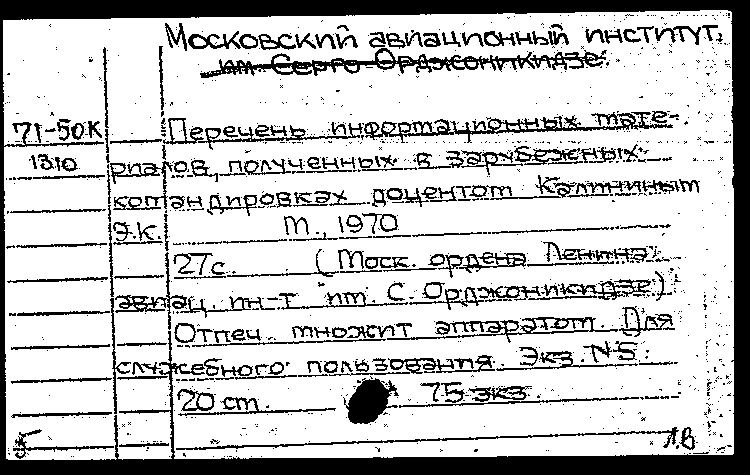 Московский авиационный институт
им Серго Орджоникидзе.
71-50К Перечень информационных мате-
1310 риалов, полученных в зарубежных
командировках доцентом Калининым
Э.К. М., 1970
27с. (Моск. ордена Ленина
авиац. ин-т им. С. Орджоникидзе)
Отпеч. множит аппаратом. Для
служебного пользования. Экз. N5.
20 см. 75 экз.
Л.В